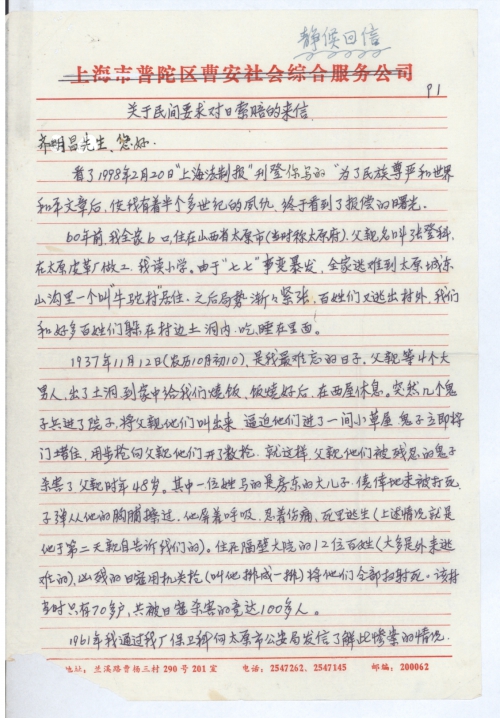 静候回信
上海市普陀区曹安社会综合服务公司
P1
关于民间要求对日索赔的来信
齐明昌先生、您好.
看了1998年2月20日"上海法制报"刊登你写的"为了民族尊严和世界
和平文章后,使我有着半个多世纪的风仇,终于看到了报偿的曙光。
60年前我全家6口,住在山西省太原市(当时称太原府),父亲名叫张登科,
在太原皮革厂做工,我读小学。由于"七七"事变暴发,全家逃难到太原城东
山沟里一个叫"牛驼村"居住,之后局势渐々紧张,百姓们又逃出村外,我们
和好多百姓们躲在村边土洞内,吃、睡在里面。
1937年11月12日(农历10月初10),是我最难忘的日子,父亲等4个大
男人,出了土洞到家中给我们烧饭,饭烧好后,在西屋休息。突然几个鬼
子兵进了院子,将父亲他们叫出来,逼迫他们进了一间小草屋,鬼子立即将
门堵住,用步枪向父亲他们开了数枪,就这样,父亲他们被残忍的鬼子
杀害了父亲时年48岁。其中一位姓马的是房东的大儿子,侥倖地未被打死,
子弹从他的胸膛擦过,他屏着呼吸,忍着伤痛、死里逃生(上述情况就是
他于第二天亲自告诉我们的)。住在隔壁大院的12位百姓(大多是外来逃
难的),凶残的日寇用机关枪(叫他排成一排)将他们全部扫射死。该村
当时只有70多户,共被日寇杀害的竟达100多人。
1961年我通过我厂保卫科向太原市公安局发信了解此惨案的情况,
地址:兰溪路曹杨三村290号201室 电话:2547262,2547145 邮编:200062